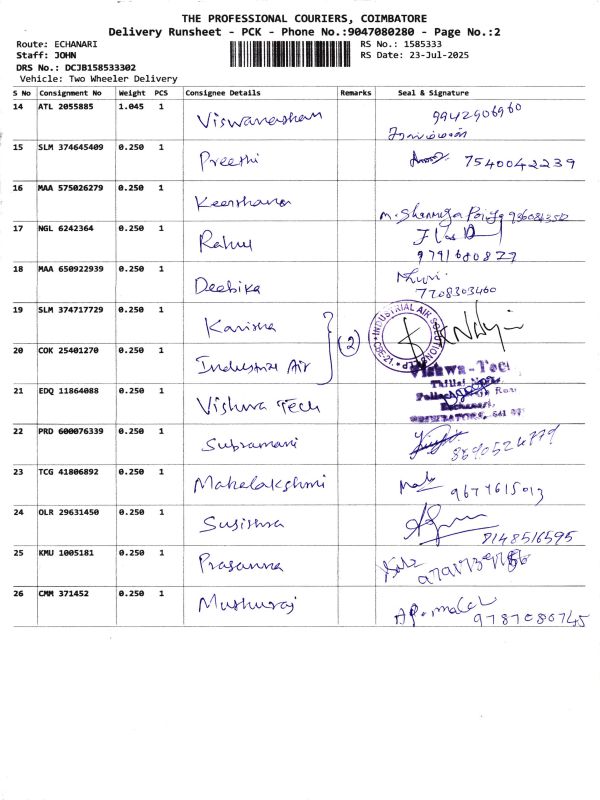 THE PROFESSIONAL COURIERS, COIMBATORE
Delivery Runsheet - PCK - Phone No.:9047080280 - Page No.:2
Route: ECHANARI
Staff: JOHN
DRS No.: DCJB158533302
Vehicle: Two Wheeler Delivery
RS No.: 1585333
RS Date: 23-Jul-2025
S No Consignment No Weight PCS Consignee Details Remarks Seal & Signature
14 ATL 2055885 1.045 1 Viswanathan 9942906960
15 SLM 374645409 0.250 1 Preethi 7540042239
16 MAA 575026279 0.250 1 Keerthana
17 NGL 6242364 0.250 1 Rahul 9791680827
18 MAA 650922939 0.250 1 Deebika 7708303460
19 SLM 374717729 0.250 1 Kanisha
20 COK 25401270 0.250 1 Industrial Air (2) INDUSTRIAL AIR
21 EDQ 11864088 0.250 1 Vishwa Tech Vishwa-Tech
22 PRD 600076339 0.250 1 Subramani
23 TCG 41806892 0.250 1 Mahelakshmi 9677615013
24 OLR 29631450 0.250 1 Susithra 7148516595
25 KMU 1005181 0.250 1 Prasanna
26 CMM 371452 0.250 1 Muthuraj 9787080745